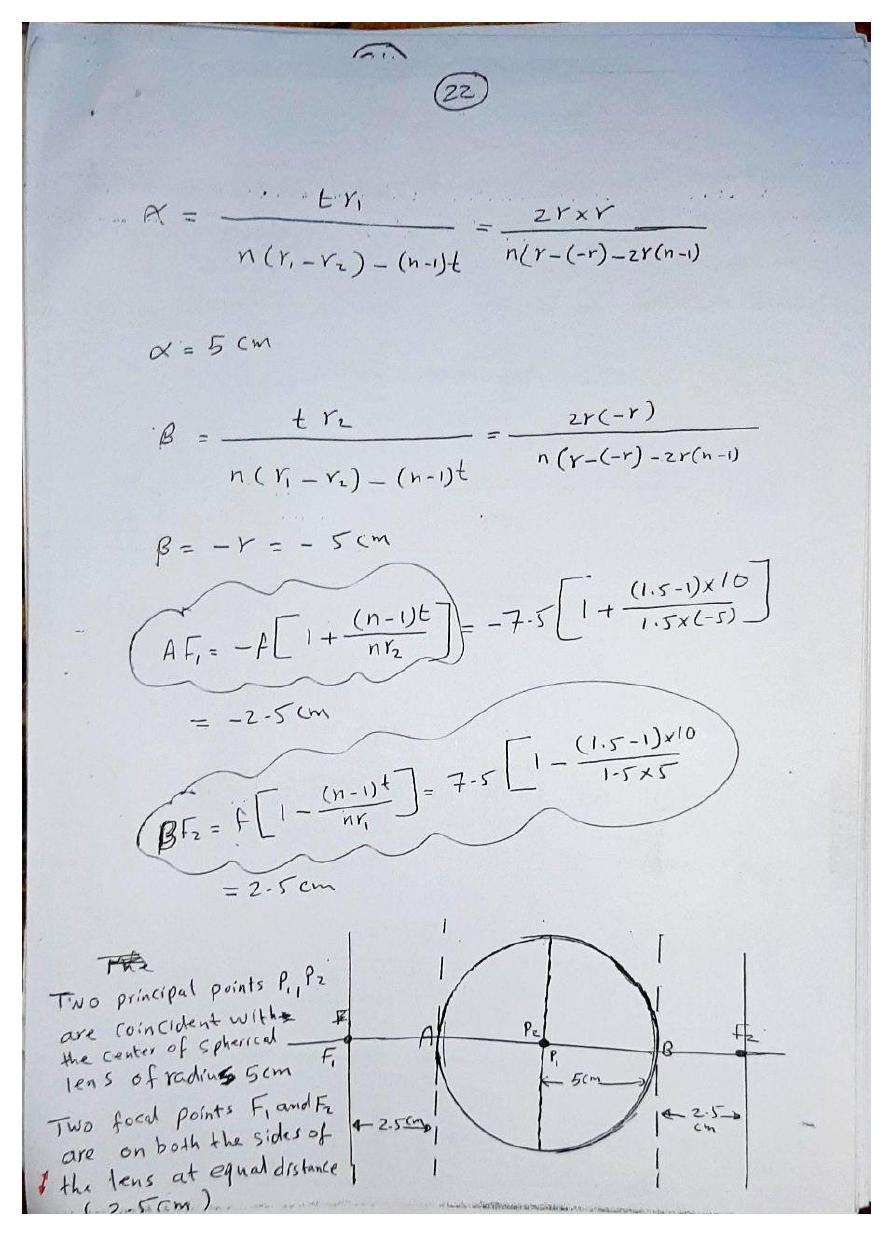 22
α = t r₁ / n(r₁ - r₂) - (n-1)t = 2r×r / n(r-(-r)-2r(n-1)
α = 5 cm
β = t r₂ / n(r₁ - r₂) - (n-1)t = 2r(-r) / n(r-(-r)-2r(n-1)
β = -r = - 5 cm
AF₁ = -f[1 + (n-1)t / nr₂] = -7.5[1 + (1.5-1)×10 / 1.5×(-5)]
= -2.5 cm
BF₂ = f[1 - (n-1)t / nr₁] = 7.5[1 - (1.5-1)×10 / 1.5×5]
= 2.5 cm
Two principal points P₁, P₂
are coincident with
the center of spherical
lens of radius 5cm
Two focal points F₁ and F₂
are on both the sides of
the lens at equal distance
(2.5cm)
F₁
A
P₂
P₁
B
F₂
5cm
2.5cm
2.5
cm